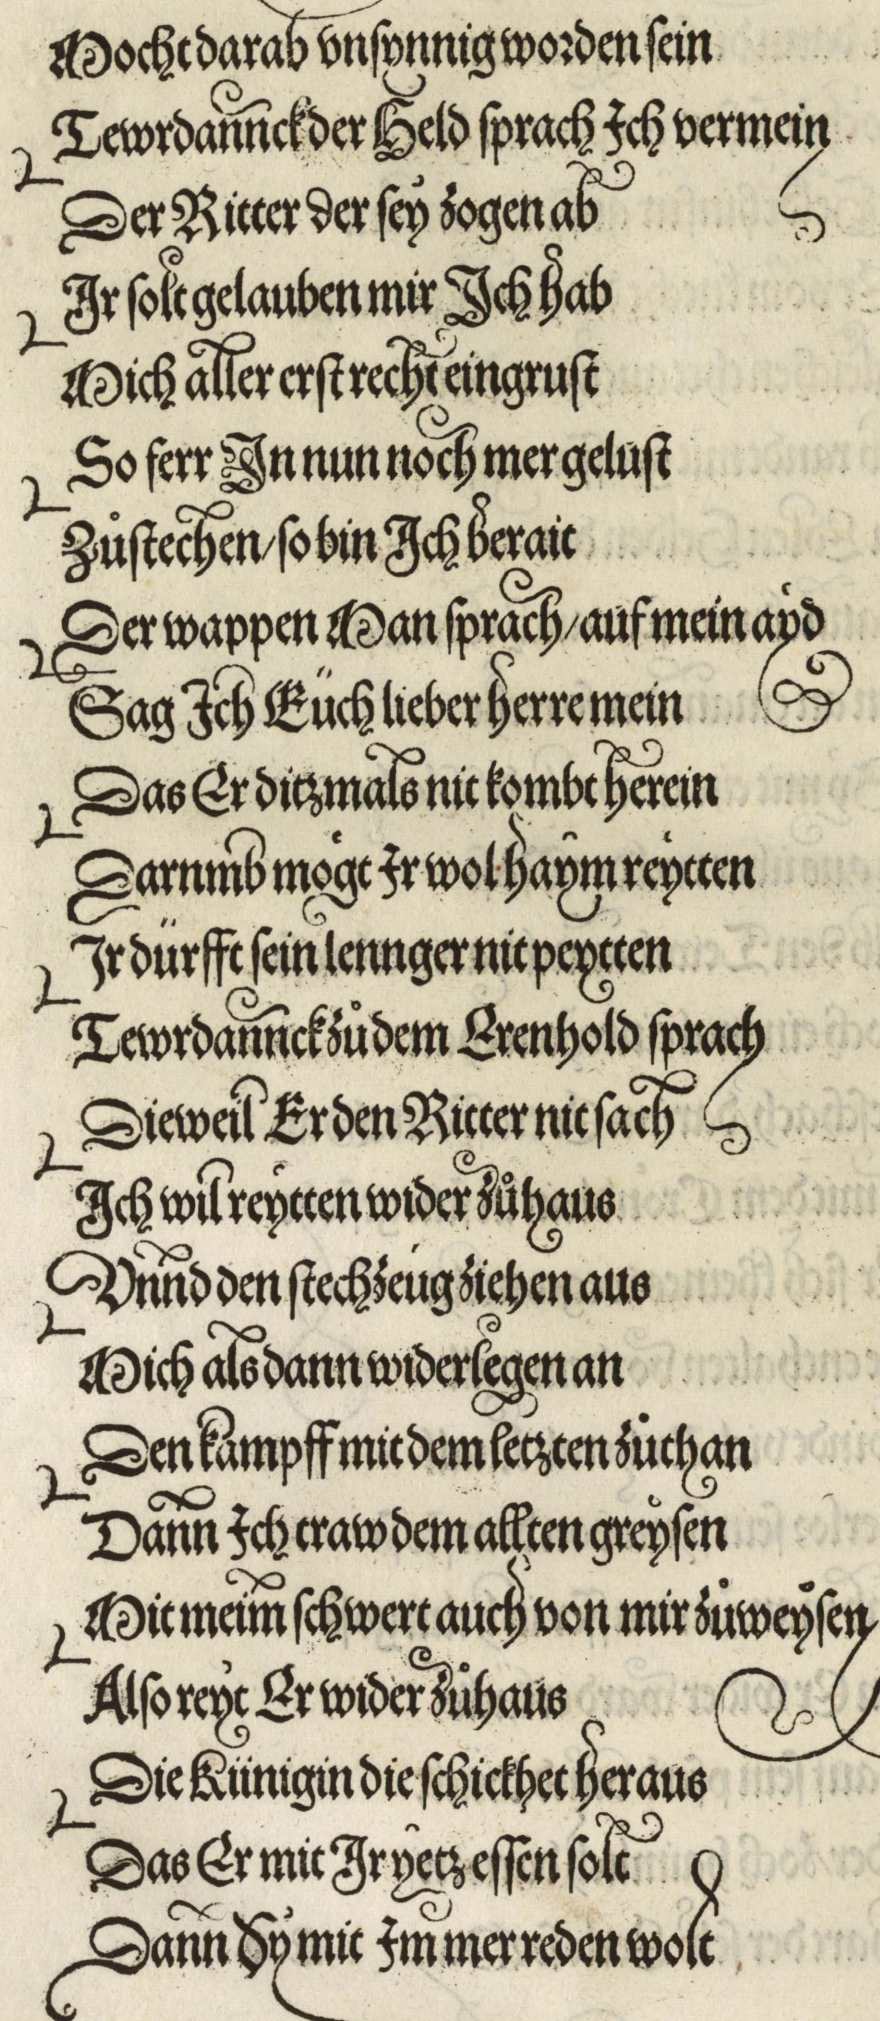 Mocht darab vnsynnig worden sein
Tewrdannck der Held sprach Ich vermein
Der Ritter der sey zogen ab
Ir solt gelauben mir Ich hab
Mich aller erst recht eingrust
So ferr In nun noch mer gelust
Zůstechen/so bin Ich berait
Der wappen Man sprach/auf mein ayd
Sag Ich Eüch lieber herre mein
Das Er ditzmals nit kombt herein
Darumb mögt Ir wol haym reytten
Ir dürfft sein lennger nit peytten
Tewrdannck zů dem Erenhold sprach
Dieweil Er den Ritter nit sach
Ich wil reytten wider zůhaus
Vnnd den stechzeug ziehen aus
Mich als dann wider legen an
Den kampff mit dem letzten zůthan
Dann Ich traw dem allten greysen
Mit meim schwert auch von mir zůweysen
Also reyt Er wider zůhaus
Die Künigin die schickhet heraus
Das Er mit Ir yetz essen solt
Dann Sy mit Im mer reden wolt